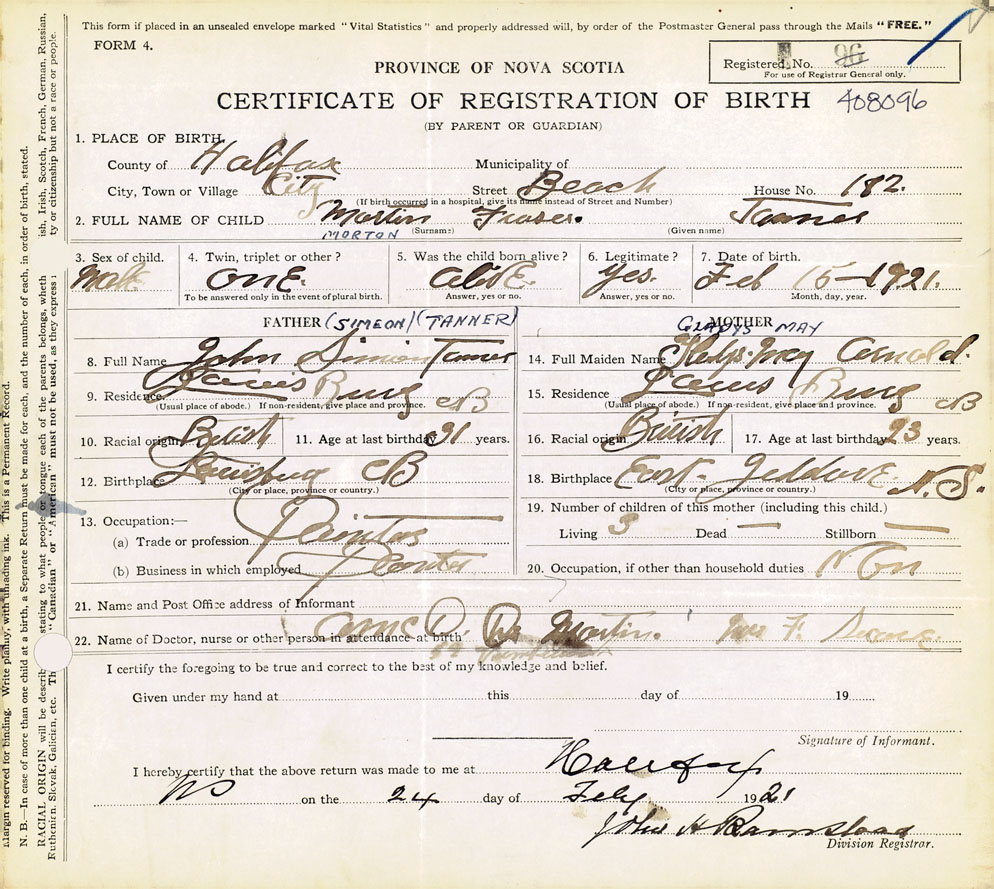 This form if placed in an unsealed envelope marked "Vital Statistics" and properly addressed will, by order of the Postmaster General pass through the Mails "FREE."
FORM 4.
Registered No. 96
For use of Registrar General only.
PROVINCE OF NOVA SCOTIA
CERTIFICATE OF REGISTRATION OF BIRTH 408096
(BY PARENT OR GUARDIAN)
1. PLACE OF BIRTH
County of Halifax Municipality of
City, Town or Village City Street Beach House No. 182.
(If birth occurred in a hospital, give its name instead of Street and Number)
2. FULL NAME OF CHILD Mortin Fraser. Tanner
MORTON (Surname) (Given name)
3. Sex of child. 4. Twin, triplet or other? 5. Was the child born alive? 6. Legitimate? 7. Date of birth.
Male onE. AlivE. Yes. Feb 15-1921.
To be answered only in the event of plural birth. Answer, yes or no. Answer, yes or no. Month, day, year.
FATHER (SIMEON) (TANNER)
8. Full Name John Simion Tanner
9. Residence Louis Burg CB
(Usual place of abode.) If non-resident, give place and province.
10. Racial origin British 11. Age at last birthday 31 years.
12. Birthplace Louisburg CB
(City or place, province or country.)
13. Occupation:—
(a) Trade or profession
(b) Business in which employed
GLADYS MAY
MOTHER
14. Full Maiden Name May Arnold.
15. Residence Louis Burg CB
(Usual place of abode.) If non-resident, give place and province.
16. Racial origin British 17. Age at last birthday 23 years.
18. Birthplace East Jeddore N.S.
(City or place, province or country.)
19. Number of children of this mother (including this child.)
Living 3 Dead — Stillborn —
20. Occupation, if other than household duties
21. Name and Post Office address of Informant
22. Name of Doctor, nurse or other person in attendance at birth Dr Mortin. Mrs F.
I certify the foregoing to be true and correct to the best of my knowledge and belief.
Given under my hand at this day of 19
Signature of Informant.
I hereby certify that the above return was made to me at Halifax
NS on the 24 day of Feby 1921
John H
Division Registrar.
Margin reserved for binding. Write plainly, with unfading ink. This is a Permanent Record.
N. B.—In case of more than one child at a birth, a Separate Return must be made for each, and the number of each, in order of birth, stated.
RACIAL ORIGIN will be describ stating to what people or tongue each of the parents belongs, wheth ish, Irish, Scotch, French, German, Russian,
Ruthenian, Slovak, Galician, etc. Th "Canadian" or "American" must not be used, as they express ty or citizenship but not a race or people.